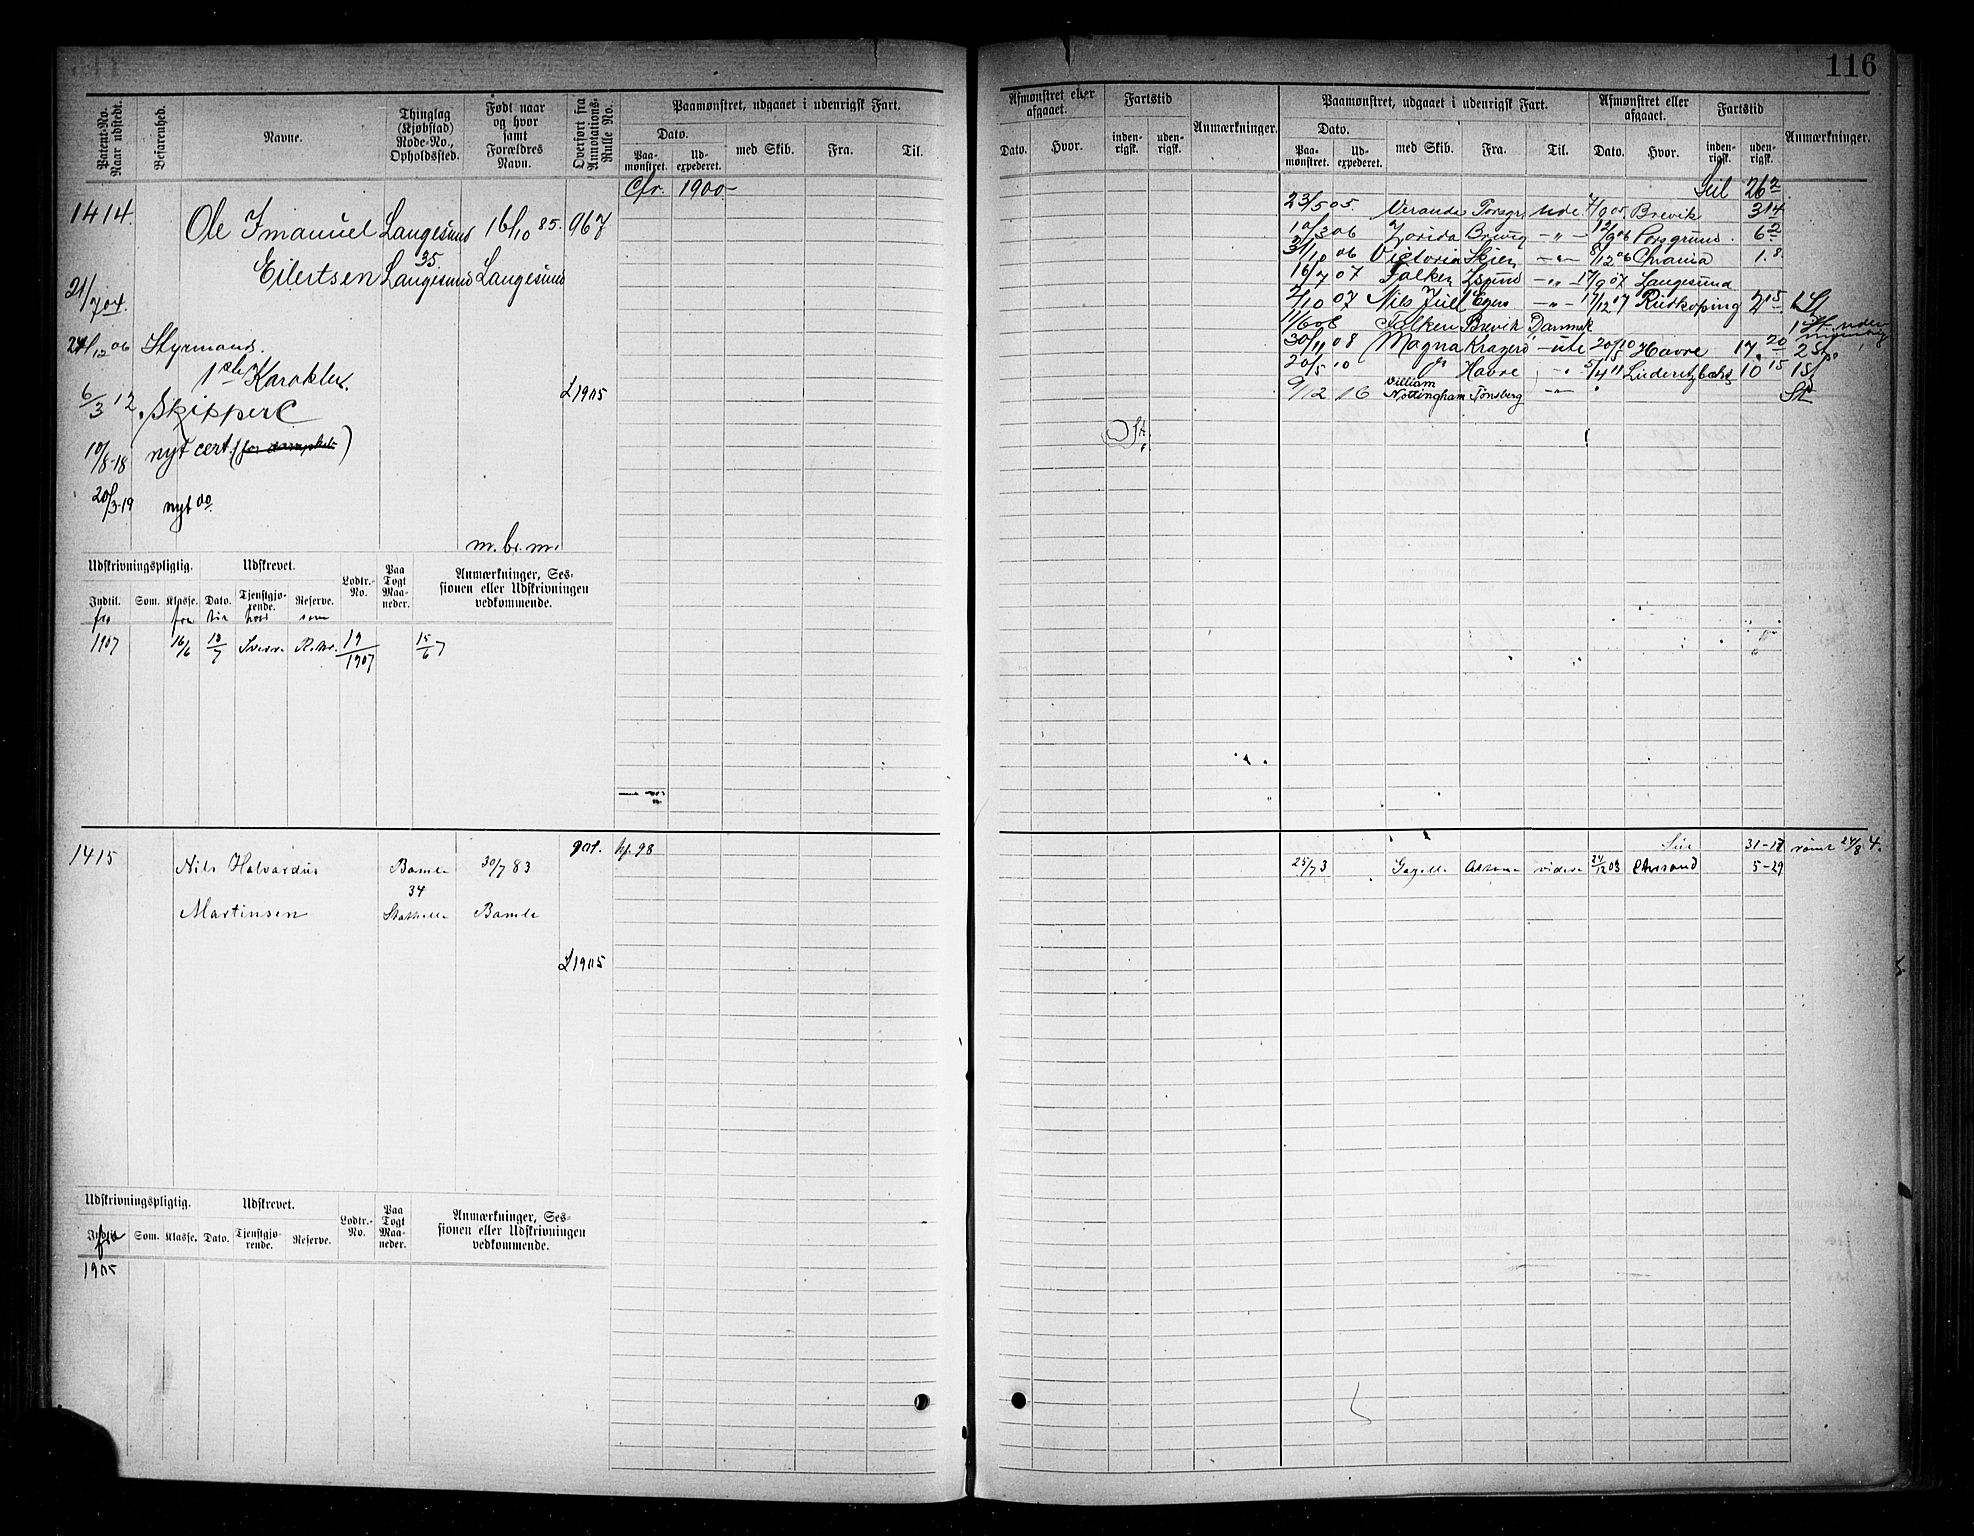 116
Patent-No. Naar udstedt.
Befarenhed.
Navne.
Thinglag (Kjøbstad) Rode-No., Opholdssted.
Født naar og hvor samt Forældres Navn.
Overført fra Annotations-Rulle No.
Paamønstret, udgaaet i udenrigsk Fart.
Dato.
Paa-mønstret. Ud-expederet.
med Skib. Fra. Til.
Afmønstret eller afgaaet.
Dato. Hvor.
Fartstid
inden-rigsk. uden-rigsk.
Anmærkninger.
Paamønstret, udgaaet i udenrigsk Fart.
Dato.
Paa-mønstret. Ud-expederet.
med Skib. Fra. Til.
Afmønstret eller afgaaet.
Dato. Hvor.
Fartstid
inden-rigsk. uden-rigsk.
Anmærkninger.
Cfr. 1900-
1414. Ole Imanuel Langesund 16/10 85. 967
35
Eilertsen Langesund Langesund
21/7 04.
24/12 06 Styrmand.
1ste Karakter.
L1905
6/3 12. Skipper C
10/8-18 nyt cert. (for dampskib)
20/3-19 nyt do.
m. br. m.
Seil 26
23/5 05. Tonsgr. ude. 7/9 05 Brevik 3 14
10/3 06 Zorida Brevig -"- 12/9 06 Porsgrund. 6
31/10 06 Victoria Skien -"- 8/12 06 Chrania 1. 8.
16/7 07 Falken Lgsund -"- 17/9 07 Langesund
2/10 07 Nils Juel -"- 17/12 07 Rudkøping 2 15 1 St
11/6 08 Falken Brevik Danmark
30/11 08 Magna Kragerø -ute 20/5 10 Havre 17. 20 2 St.
20/5 10 do Havre 5/4 11 Luderitzbucht 10 15 1 St
9/12 16 William Nottingham Tønsberg -"- St
Udskrivningspligtig.
Indtil. Som. Klasse.
Udskrevet.
Dato. Tjenstgjø-rende. Reserve.
Lodtr.-No.
Paa Togt Maa-neder.
Anmærkninger, Ses-sionen eller Udskrivningen vedkommende.
fra
1907 16/6 18/7 19/1907 15/6 7
1415 901. hp. 98
Nils Halvardus Bamle 30/7 83
34
Martinsen Stathelle Bamle
L1905
31-17 rømt 24/8 4.
25/7 3 videre 24/12 03 Chrsand 5-29
Udskrivningspligtig.
Indtil. Som. Klasse.
Udskrevet.
Dato. Tjenstgjø-rende. Reserve.
Lodtr.-No.
Paa Togt Maa-neder.
Anmærkninger, Ses-sionen eller Udskrivningen vedkommende.
fra
1905